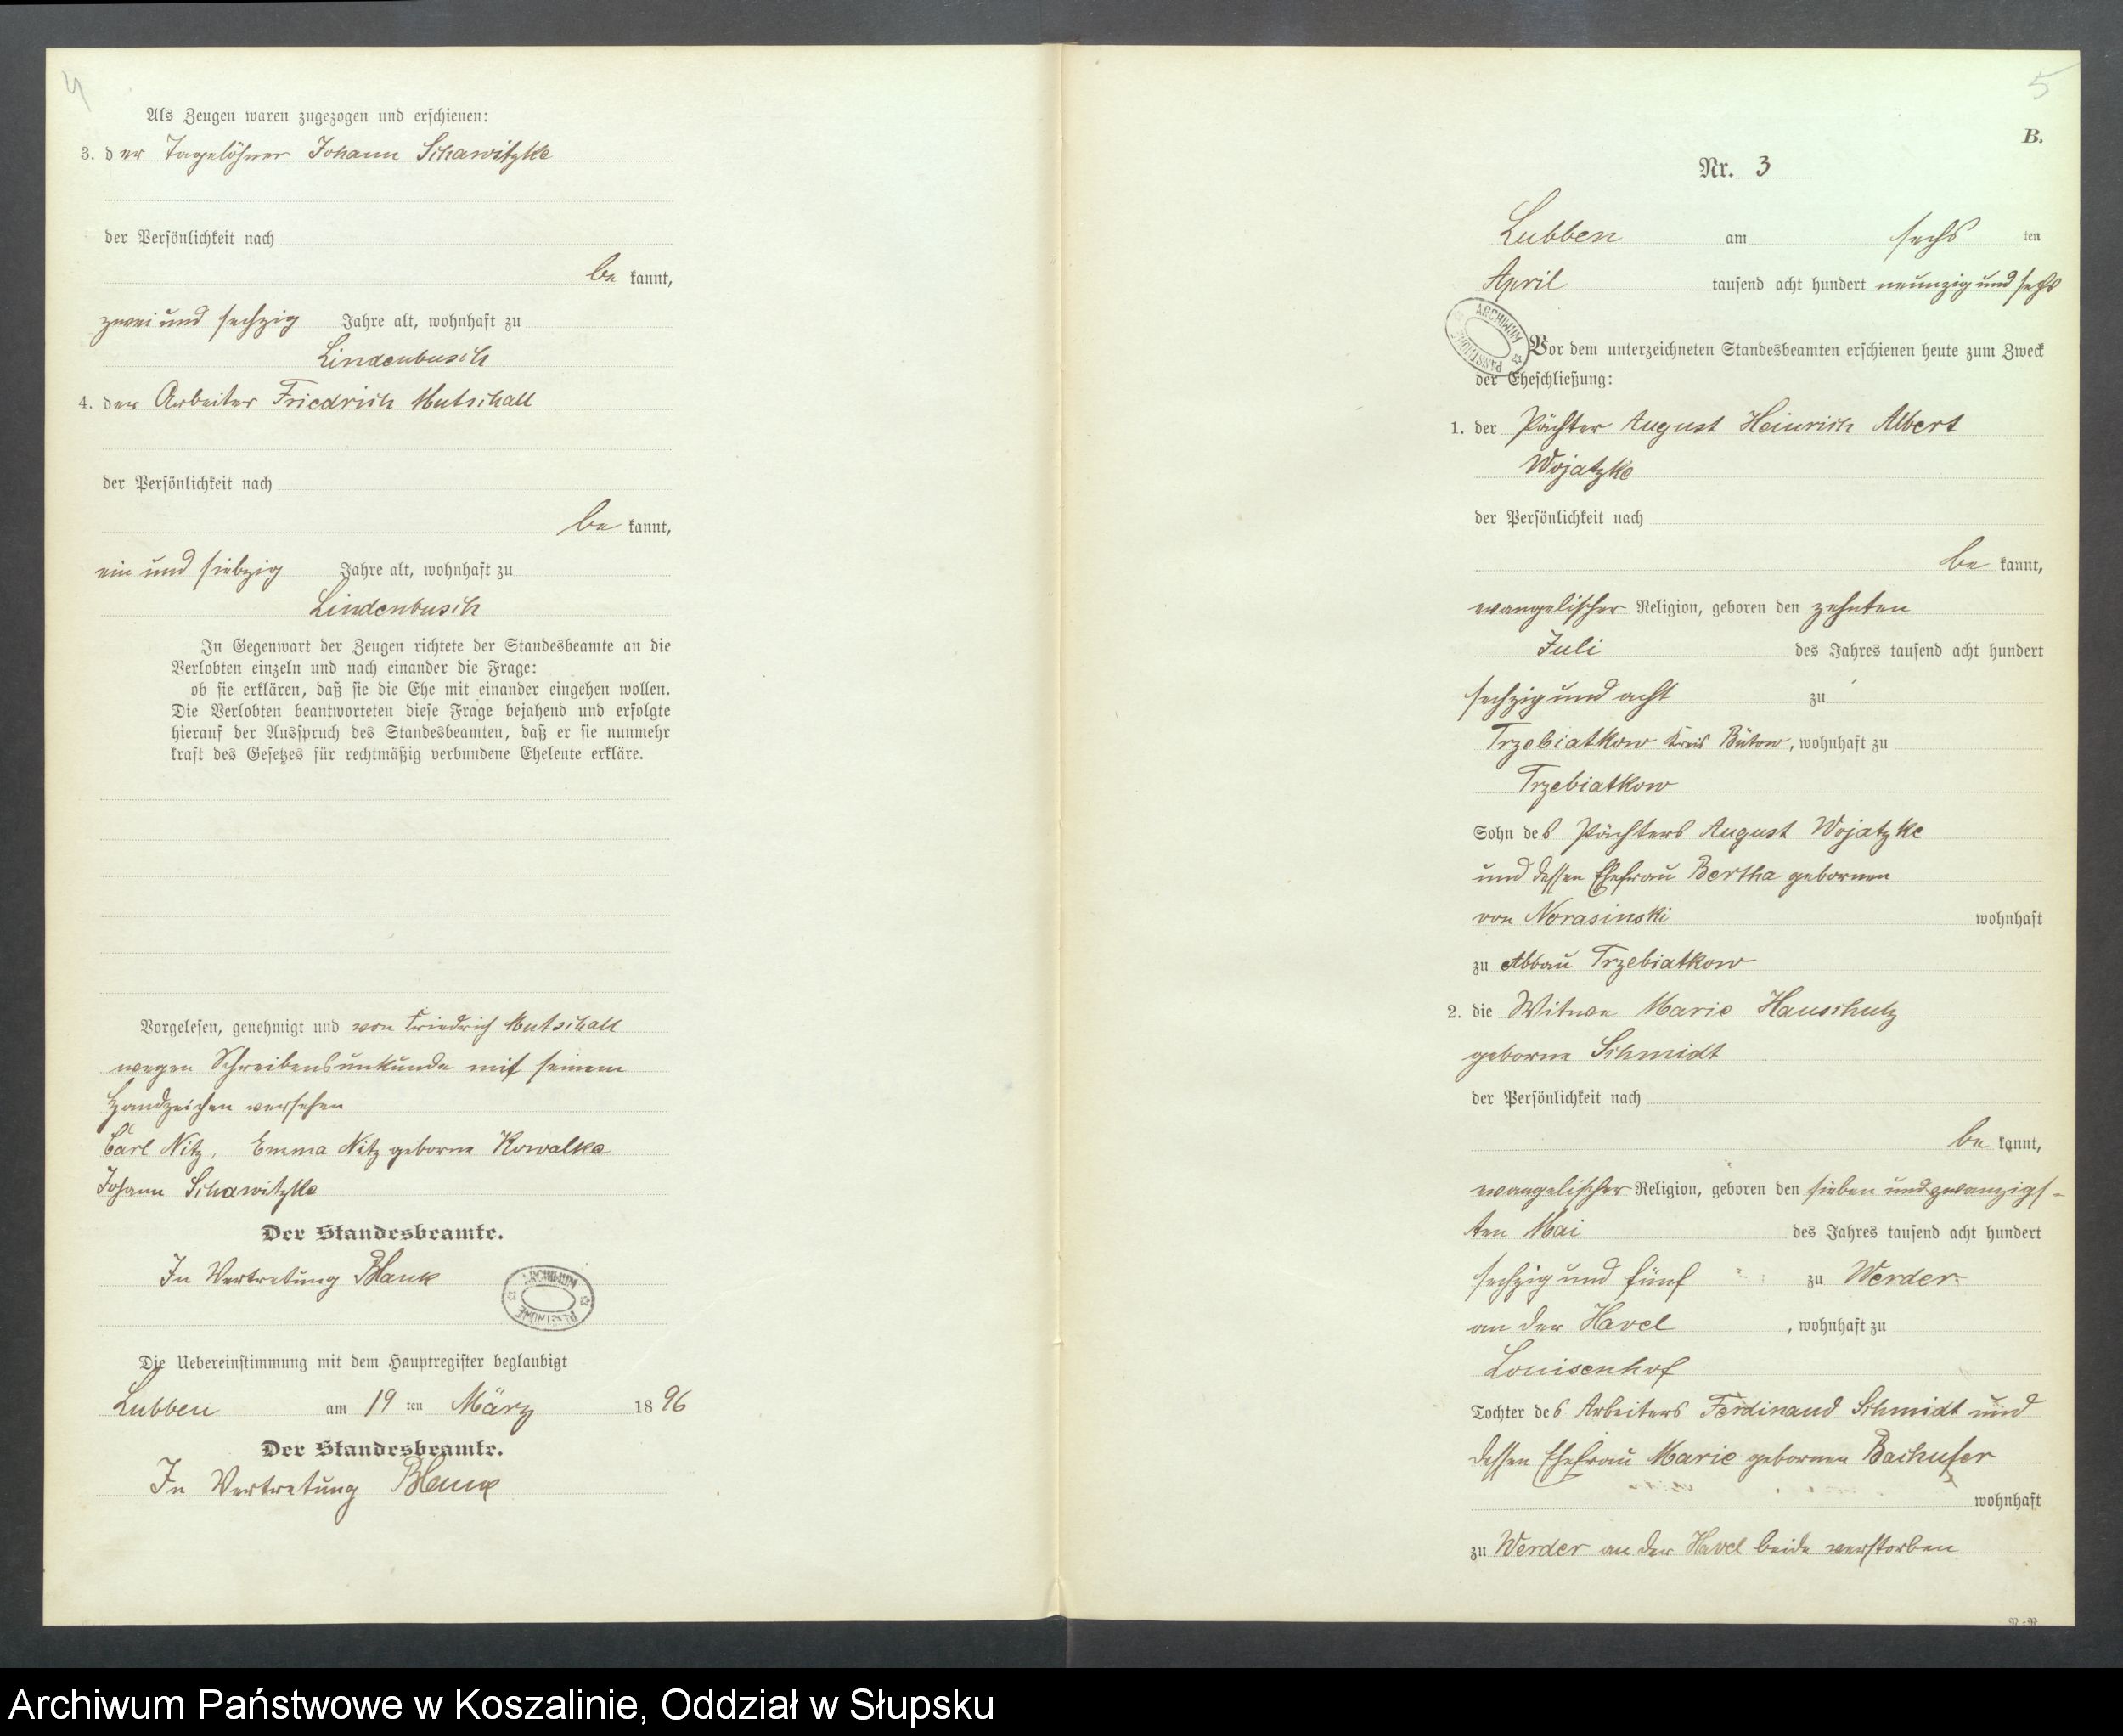 4
Als Zeugen waren zugezogen und erschienen:
3. der Tagelöhner Johann Schawitzke
der Persönlichkeit nach
be kannt,
zwei und sechzig Jahre alt, wohnhaft zu
Lindenbusch
4. der Arbeiter Friedrich Mutschall
der Persönlichkeit nach
be kannt,
ein und siebzig Jahre alt, wohnhaft zu
Lindenbusch
In Gegenwart der Zeugen richtete der Standesbeamte an die
Verlobten einzeln und nach einander die Frage:
ob sie erklären, daß sie die Ehe mit einander eingehen wollen.
Die Verlobten beantworteten diese Frage bejahend und erfolgte
hierauf der Ausspruch des Standesbeamten, daß er sie nunmehr
kraft des Gesetzes für rechtmäßig verbundene Eheleute erkläre.
Vorgelesen, genehmigt und von Friedrich Mutschall
wegen Schreibensunkunde mit seinem
Handzeichen versehen
Carl Nitz, Emma Nitz geborne Kowalke
Johann Schawitzke
Der Standesbeamte.
In Vertretung Blank
ARCHIWUM PAŃSTWOWE
Die Uebereinstimmung mit dem Hauptregister beglaubigt
Lubben am 19 ten März 1896
Der Standesbeamte.
In Vertretung Blank
5
B.
Nr. 3
Lubben am sechs ten
April tausend acht hundert neunzig und sechs
ARCHIWUM PAŃSTWOWE
Vor dem unterzeichneten Standesbeamten erschienen heute zum Zweck
der Eheschließung:
1. der Pächter August Heinrich Albert
Wojatzke
der Persönlichkeit nach
be kannt,
evangelischer Religion, geboren den zehnten
Juli des Jahres tausend acht hundert
sechzig und acht zu
Trzebiatkow Kreis Bütow, wohnhaft zu
Trzebiatkow
Sohn des Pächters August Wojatzke
und dessen Ehefrau Bertha gebornen
von Norasinski wohnhaft
zu Abbau Trzebiatkow
2. die Witwe Marie Hauschulz
geborne Schmidt
der Persönlichkeit nach
be kannt,
evangelischer Religion, geboren den sieben und zwanzigs-
ten Mai des Jahres tausend acht hundert
sechzig und fünf zu Werder
an der Havel, wohnhaft zu
Louisenhof
Tochter des Arbeiters Ferdinand Schmidt und
dessen Ehefrau Marie gebornen Bachufer
wohnhaft
zu Werder an der Havel beide verstorben
Archiwum Państwowe w Koszalinie, Oddział w Słupsku